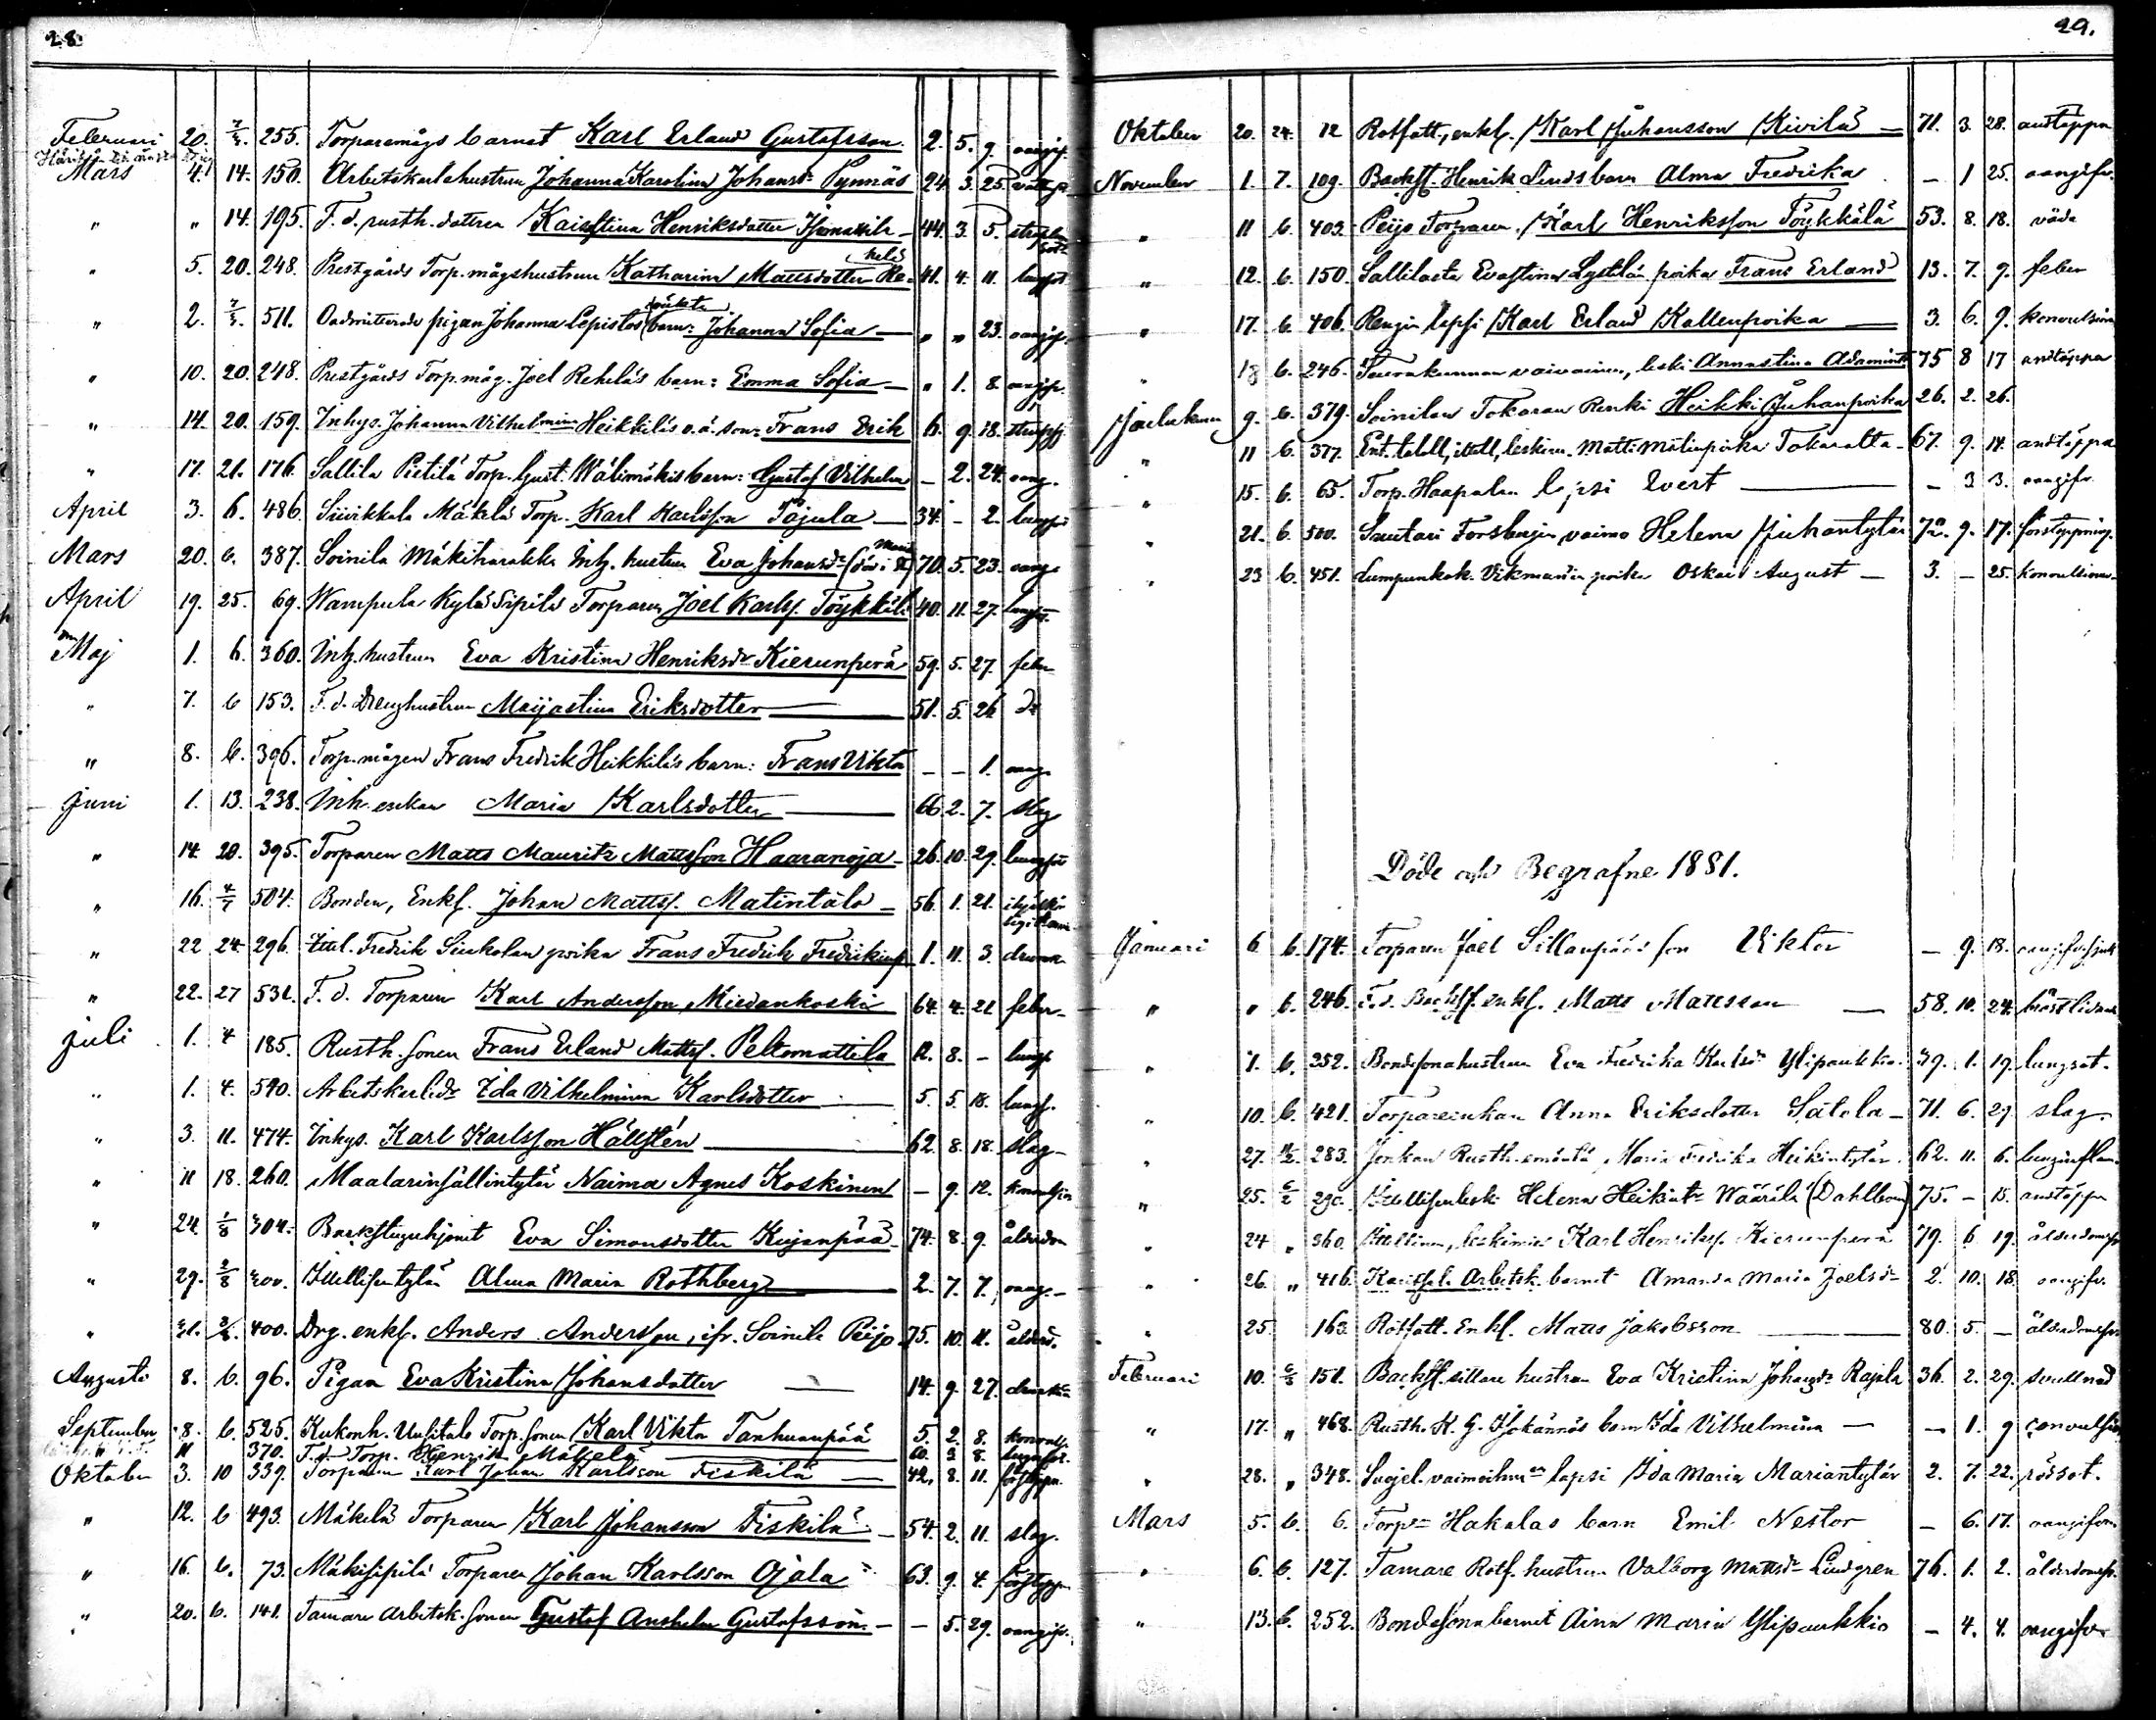 28.
Februari 20. 7/3. 255. Torparemågs barnet Karl Erland Gustafsson 2. 5. 9. oangif.
Mars 4. 14. 150. Arbetskarlshustrun Johanna Karolina Johansdr Pynnäs 24. 3. 25.
" " 14. 195. F. d. rusth. dottren Kaisastina Henriksdotter 44. 3. 5.
" 5. 20. 248. Prestgårds Torp. mågshustrun Katharina Mattsdotter Rehelä 41. 4. 11. lungsot
" 2. 7/3. 511. pigan Johanna Lepistös oäkta barn: Johanna Sofia " " 23. oangif.
" 10. 20. 248. Prestgårds Torp. måg. Joel Rehelä's barn: Emma Sofia " 1. 8. oangif.
" 14. 20. 159. Inhys. Johanna Vilhelmina Heikkiläs o. ä. son: Frans Erik 6. 9. 18.
" 17. 21. 176. Sallila Pietilä Torp. Gust. Wälimäkis barn: Gustaf Vilhelm – 2. 24. oang.
April 3. 6. 486. Suvikkala Mäkelä Torp. Karl Karlsson Tåjula 34. – 2. lungsot
Mars 20. 6. 387. Soinila Mäkiharakka Inh. hustrun Eva Johansdr 70. 5. 23. oang.
April 19. 25. 69. Wampula Kylä Sipilä Torparen Joel Karlss. Töykkälä 40. 11. 27. lungs.
Maj 1. 6. 360. Inh. hustrun Eva Kristina Henriksdr Kierunperä 59. 5. 27. feber
" 7. 6 153. F. d. Drenghustrun Maijastina Eriksdotter 51. 5. 26 do
" 8. 6. 396. Torp. mågen Frans Fredrik Heikkiläs barn: Frans Viktor – – 1. oang.
Juni 1. 13. 238. Inh. enkan Maria Karlsdotter 66. 2. 7. slag
" 14. 20. 395. Torparen Matts Mauritz Mattsson Haaranoja 26. 10. 29. lungsot
" 16. 4/7 504. Bonden, Enkl. Johan Mattss. Matintalo 56. 1. 21.
" 22 24 296. Ittel. Fredrik Sinkolan poika Frans Fredrik Fredrikinp. 1. 11. 3. drunk.
" 22. 27 531. F. d. Torparen Karl Andersson Miedankoski 64. 4. 21 feber
Juli 1. 4 185. Rusth. sonen Frans Erland Mattss. Peltomattila 12. 8. – lungs.
" 1. 4. 540. Arbetskarlsdr Ida Vilhelmina Karlsdotter 5. 5. 18. lungs.
" 3. 11. 474. Inhys. Karl Karlsson Hällstén 62. 8. 18. slag
" 11 18. 260. Maalarinsällintytär Naima Agnes Koskinen – 9. 12.
" 24. 1/8 304. Backstuguhjonet Eva Simonsdotter Kujanpää 74. 8. 9. ålderdom
" 29. 2/8 Ittellisentytär Alma Maria Rothberg 2. 7. 7. oang.
" 400. Drg. enkl. Anders Andersson, ifr. Soinila Peijo 75. 10. 11. ålderd.
Augusti 8. 6. 96. Pigan Eva Kristina Johansdotter 14. 9. 27.
September 8. 6. 525. Kukonh. Uusitalo Torp. sonen Karl Viktor Tanhuanpää 5. 2. 8.
" 11 370. F. d. Torp. Henrik Mäkelä 60. 3. 8. lungsot.
Oktober 3. 10 339. Torparen Karl Johan Karlsson Fiskilä 42. 8. 11.
" 12. 6 493. Mäkelä Torparen Karl Johansson Fiskilä 54. 2. 11. slag.
" 16. 6. 73. Mäkisipilä Torparen Johan Karlsson Ojala 63. 9. 4.
" 20. 6. 141. Tamare Arbetsk. sonen Gustaf Anshelm Gustafsson – 5. 29. oangif.
29.
Oktober 20. 24. 12 Rotfatt. enkl. Karl Juhansson Kivilä 71. 3. 28. andtäppa
November 1. 7. 109. Backst. Henrik Linds barn Alma Fredrika – 1 25. oangifv.
" 11 6. 403. Peijo Torparen Karl Henriksson Töykkälä 53. 8. 18. våda
" 12. 6. 150. Sallilasta Evastina Lystilän poika Frans Erland 13. 7. 9. feber
" 17. 6 406. Rengin lapsi Karl Erland Kallenpoika 3. 6. 9.
" 18 6. 246. Seurakunnan vaivainen, leski Annastina Adamintr 75 8 17 andtäppa
Joulukuu 9. 6. 379. Soinilan Tokaran Renki Heikki Juhanpoika 26. 2. 26.
" 11 6. 377. Ent. taloll., ittell., leskim. Matti Matinpoika Tokaralta 67. 9. 14. andtäppa
" 15. 6. 65. Torp. Haapalan lapsi Evert – 3 3. oangifv.
" 21. 6. 500. Suutari Forsbergin vaimo Helena Juhantytär 72. 9. 17. förstoppning.
" 23 6. 451. Lumpunkok. Vikmanin poika Oskar August 3. – 25.
Döde och Begrafne 1881.
Januari 6 6. 174. Torparen Joel Sillanpääs son Viktor – 9. 18.
" " 6. 246. F. d. Backst. enkl. Matts Matsson 58. 10. 24.
" 7. 6. 352. Bondesonahustrun Eva Fredrika Karlsdr Ylipaukkio 39. 1. 19. lungsot.
" 10. 6. 421. Torpareenkan Anna Eriksdotter Satola 71. 6. 29 slag.
" 27. 283. Jonkan Rusth. emäntä Maria Fredrika Heikintytär 62. 11. 6.
" 25. 6/2 290. Ittellisenleski Helena Heikintr Wäärälä (Dahlbom) 75. – 15. andtäppa
" 24 " 360. Ittellinen, leskimies Karl Henrikss. Kierunperä 79. 6 19.
" 26. " 416. Arbetsk. barnet Amanda Maria Joelsdr 2. 10. 18. oangifv.
" 25 163. Rotfatt. Enkl. Matts Jakobsson 80. 5. –
Februari 10. 6/3 151. Backst. sittare hustrun Eva Kristina Johansdr Rajala 36. 2. 29. svullnad
" 17. " 468. Rusth. K. G. Isokännös barn Ida Vilhelmina – 1. 9
" 28. " 348. Suojel. vaimoihmen lapsi Ida Maria Mariantytär 2. 7. 22.
Mars 5. 6. 6. Torpn Hakalas barn Emil Nestor – 6. 17. oangifven
" 6. 6. 127. Tamare Rotf. hustrun Valborg Mattsdr Lindgren 76. 1. 2.
" 13. 6. 252. Bondesonabarnet Aina Maria Ylipaukkio – 4. 4. oangifv.